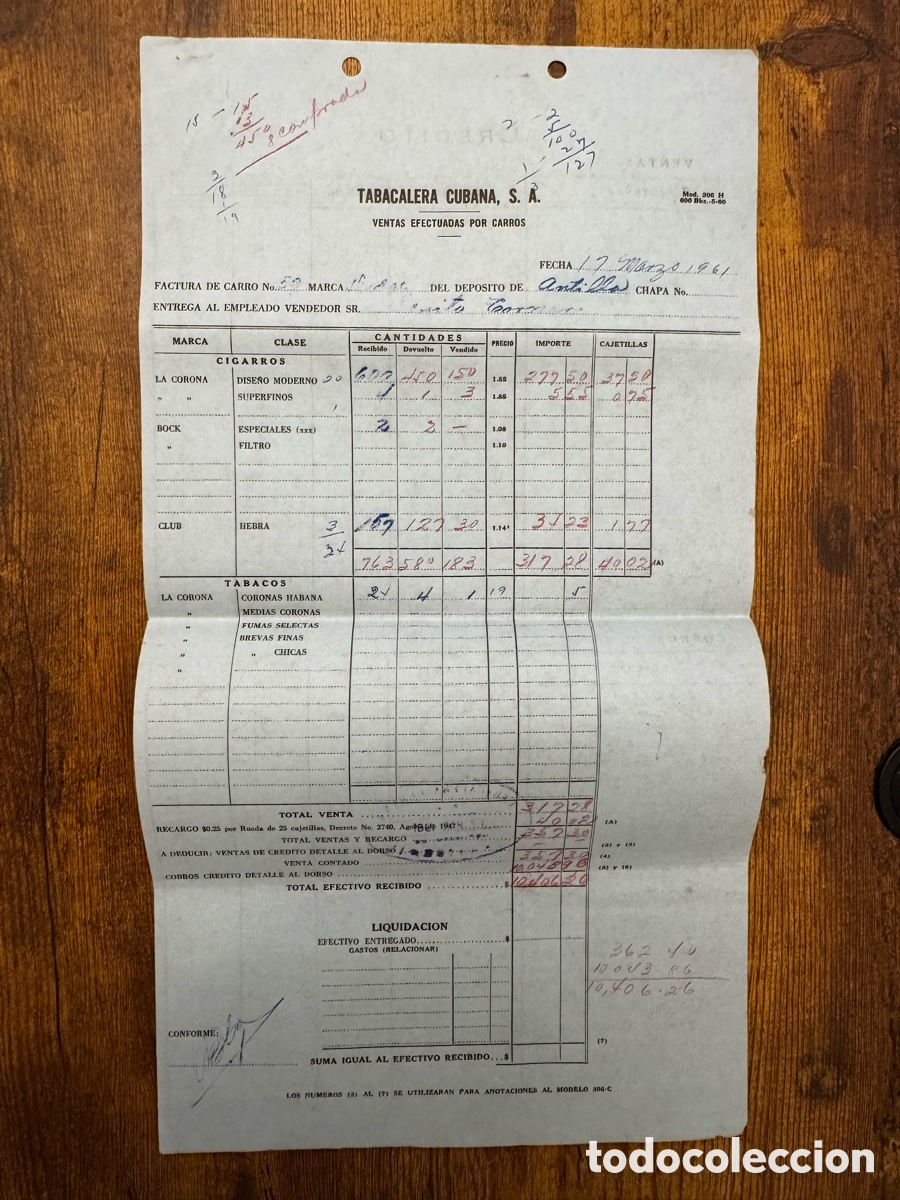 15 - 15
3
450
8 comprada
2
18
1
19
2 - 2
5
100
1 - 27
3 127
TABACALERA CUBANA, S. A.
Mod. 206 H
600 Bks.-5-60
VENTAS EFECTUADAS POR CARROS
FECHA 17 Marzo 1961
FACTURA DE CARRO No. MARCA DEL DEPOSITO DE Antilla CHAPA No.
ENTREGA AL EMPLEADO VENDEDOR SR.
MARCA CLASE CANTIDADES PRECIO IMPORTE CAJETILLAS
Recibido Devuelto Vendido
CIGARROS
LA CORONA DISEÑO MODERNO 20 600 450 150 1.85 277 50 37 50
" " SUPERFINOS 4 1 3 1.85 5 55 0 75
1
BOCK ESPECIALES (xxx) 2 2 — 1.98
" FILTRO 1.10
CLUB HEBRA 3 157 127 30 1.14¹ 34 23 1 77
24
763 580 183 317 28 40 02 (A)
TABACOS
LA CORONA CORONAS HABANA 24 4 1 19 5
" MEDIAS CORONAS
" FUMAS SELECTAS
" BREVAS FINAS
" " CHICAS
"
TOTAL VENTA 317 28
RECARGO $0.25 por Rueda de 25 cajetillas, Decreto No. 2740, Agosto 1947 40 02 (A)
TOTAL VENTAS Y RECARGO 357 30
A DEDUCIR: VENTAS DE CREDITO DETALLE AL DORSO (2) y (3)
VENTA CONTADO 357 30 (4)
COBROS CREDITO DETALLE AL DORSO (5) y (6)
TOTAL EFECTIVO RECIBIDO $ 10,406 26
LIQUIDACION
EFECTIVO ENTREGADO $
GASTOS (RELACIONAR)
362.40
10043.86
10,406.26
CONFORME:
(7)
SUMA IGUAL AL EFECTIVO RECIBIDO...$
LOS NUMEROS (2) AL (7) SE UTILIZARAN PARA ANOTACIONES AL MODELO 306-C
todocoleccion